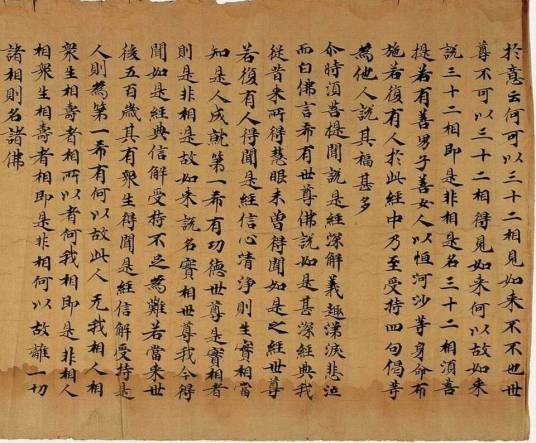 於意云何可以三十二相見如来不不也世
尊不可以三十二相得見如来何以故如来
說三十二相即是非相是名三十二相須菩
提若有善男子善女人以恒河沙等身命布
施若復有人於此經中乃至受持四句偈等
為他人說其福甚多
尒時須菩提聞說是經深解義趣涕淚悲泣
而白佛言希有世尊佛說如是甚深經典我
從昔来所得慧眼未曾得聞如是之經世尊
若復有人得聞是經信心清淨則生實相當
知是人成就第一希有功德世尊是實相者
則是非相是故如来說名實相世尊我今得
聞如是經典信解受持不足為難若當来世
後五百歲其有眾生得聞是經信解受持是
人則為第一希有何以故此人无我相人相
眾生相壽者相所以者何我相即是非相人
相眾生相壽者相即是非相何以故離一切
諸相則名諸佛